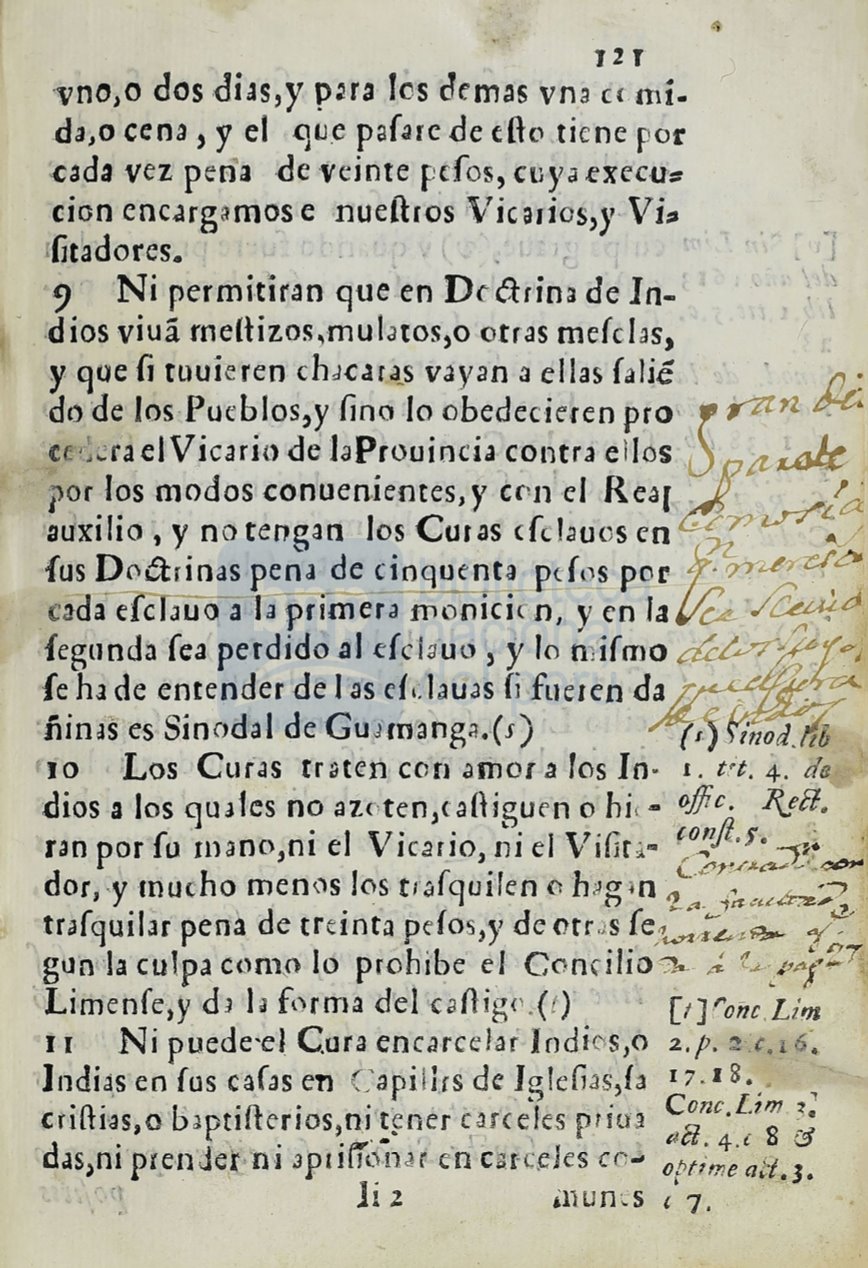 121
vno,o dos dias,y para los demas vna comi-
da,o cena , y el que pasare de esto tiene por
cada vez pena de veinte pesos, cuya execu-
cion encargamos e nuestros Vicarios,y Vi-
sitadores.
9 Ni permitiran que en Doctrina de In-
dios viuã mestizos,mulatos,o otras mesclas,
y que si tuuieren chacaras vayan a ellas saliẽ
do de los Pueblos,y sino lo obedecieren pro
cedera el Vicario de la Prouincia contra ellos
por los modos conuenientes,y con el Real
auxilio , y no tengan los Curas esclauos en
sus Doctrinas pena de cinquenta pesos por
cada esclauo a la primera monicion, y en la
segunda sea perdido al esclauo , y lo mismo
se ha de entender de las esclauas si fueren da
ñinas es Sinodal de Guamanga.(s)
10 Los Curas traten con amor a los In-
dios a los quales no azoten,castiguen o hie-
ran por su mano,ni el Vicario, ni el Visita-
dor, y mucho menos los trasquilen o hagan
trasquilar pena de treinta pesos,y de otras se
gun la culpa como lo prohibe el Concilio
Limense,y da la forma del castigo.(t)
11 Ni puede el Cura encarcelar Indios,o
Indias en sus casas en Capillas de Iglesias,sa
cristias,o baptisterios,ni tener carceles priua
das,ni prender ni aprisionar en carceles co-
Ii 2 munes
gran dis
parate
(s) Sinod.lib
1. tit. 4. de
offic. Rect.
const.5.
[t] Conc.Lim
2.p. 2 c.16.
17.18.
Conc.Lim 3.
act. 4.c 8 &
optime act.3.
c 7.